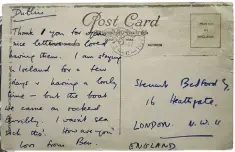 Dublin
Post Card
Thank you for
nice letter loved
having them. I am staying
in Ireland for a few
days & having a lovely
time but the boat
we came on rocked
terribly. I wasn't sea
sick tho'. How are you?
love from Ben.
Stewart Bedford Esq
16 Heathgate,
LONDON. N.W.11
ENGLAND